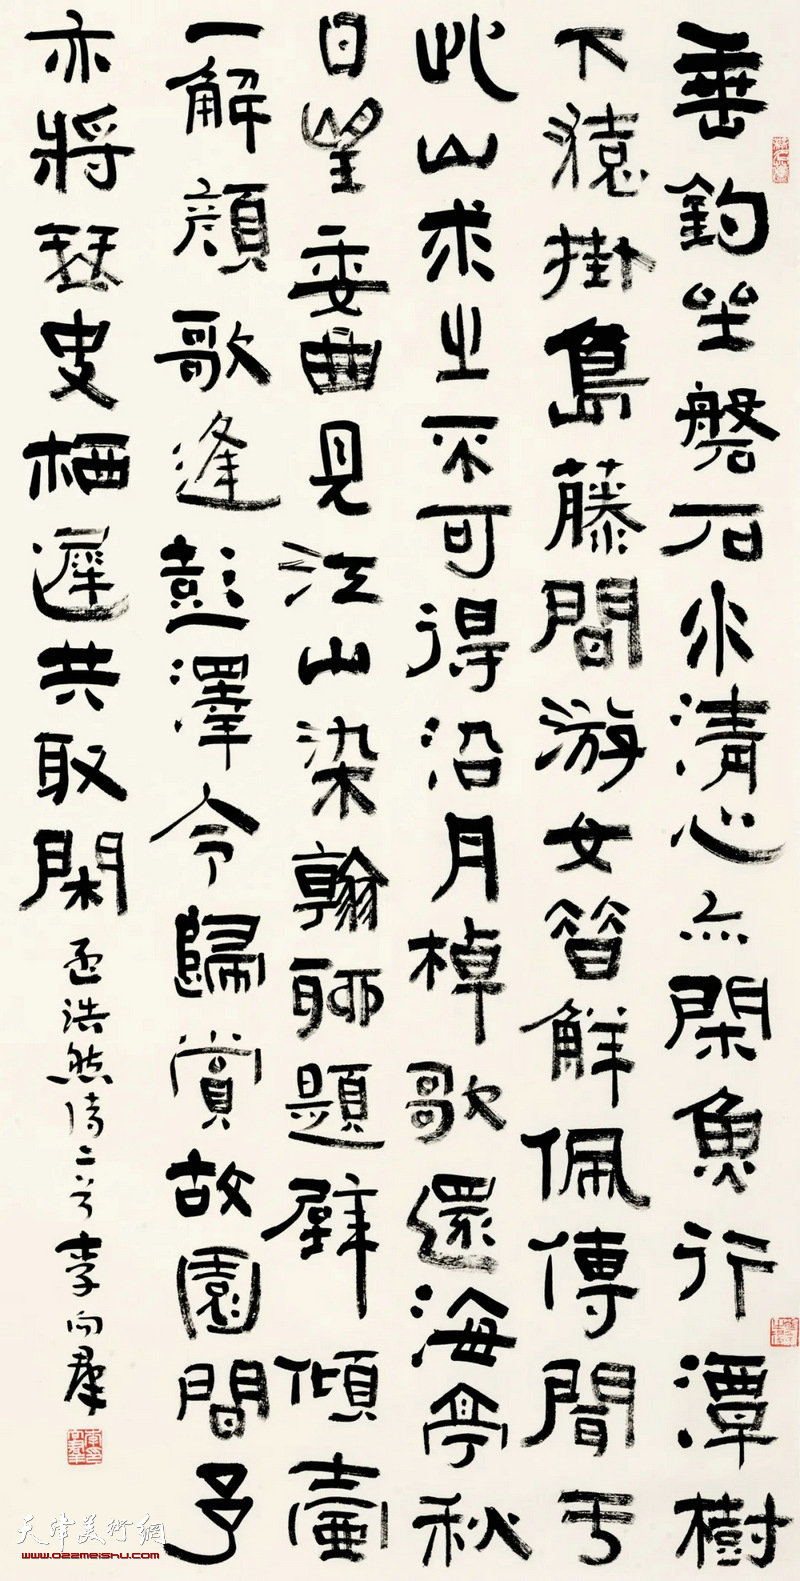 垂釣坐磐石水清心亦閑魚行潭樹
下猿掛島藤間游女昔解佩傳聞于
此山求之不可得沿月棹歌還海亭秋
日望委曲見江山染翰聊題壁傾壺
一解顏歌逢彭澤令歸賞故園間予
亦將琴史栖遲共取閑
孟浩然詩二首李向羣
天津美術網
www.022meishu.com